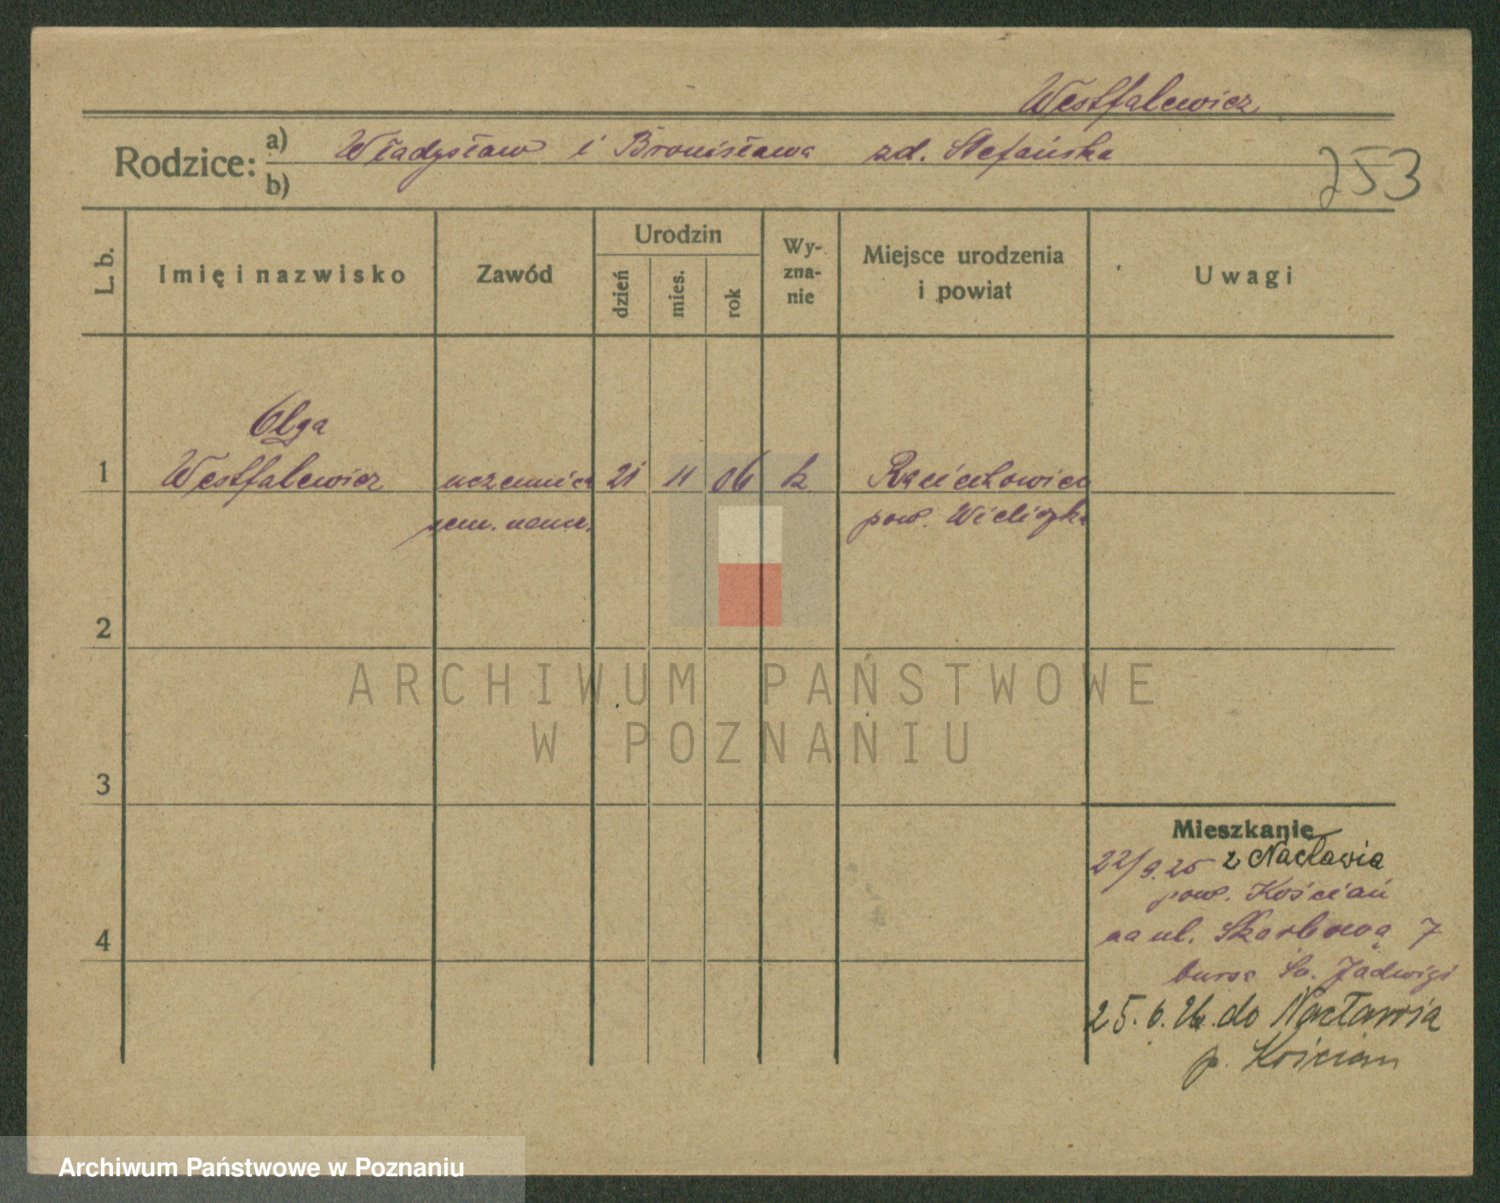 Westfalewicz
Rodzice: a) Władysław i Bronisława zd. Stefańska
b)
253
L. b.
Imię i nazwisko
Zawód
Urodzin
dzień
mies.
rok
Wy-
zna-
nie
Miejsce urodzenia
i powiat
Uwagi
Olga
1 Westfalewicz uczennica 21 11 06 k Raciechowice
sem. naucz. pow. Wieliczka
2
3
4
Mieszkanie
22/9.25 z Nacławia
pow. Kościan
na ul. Skarbowa 7
bursa Św. Jadwigi
25.6.26. do Nacławia
p. Kościan
ARCHIWUM PAŃSTWOWE
W POZNANIU
Archiwum Państwowe w Poznaniu